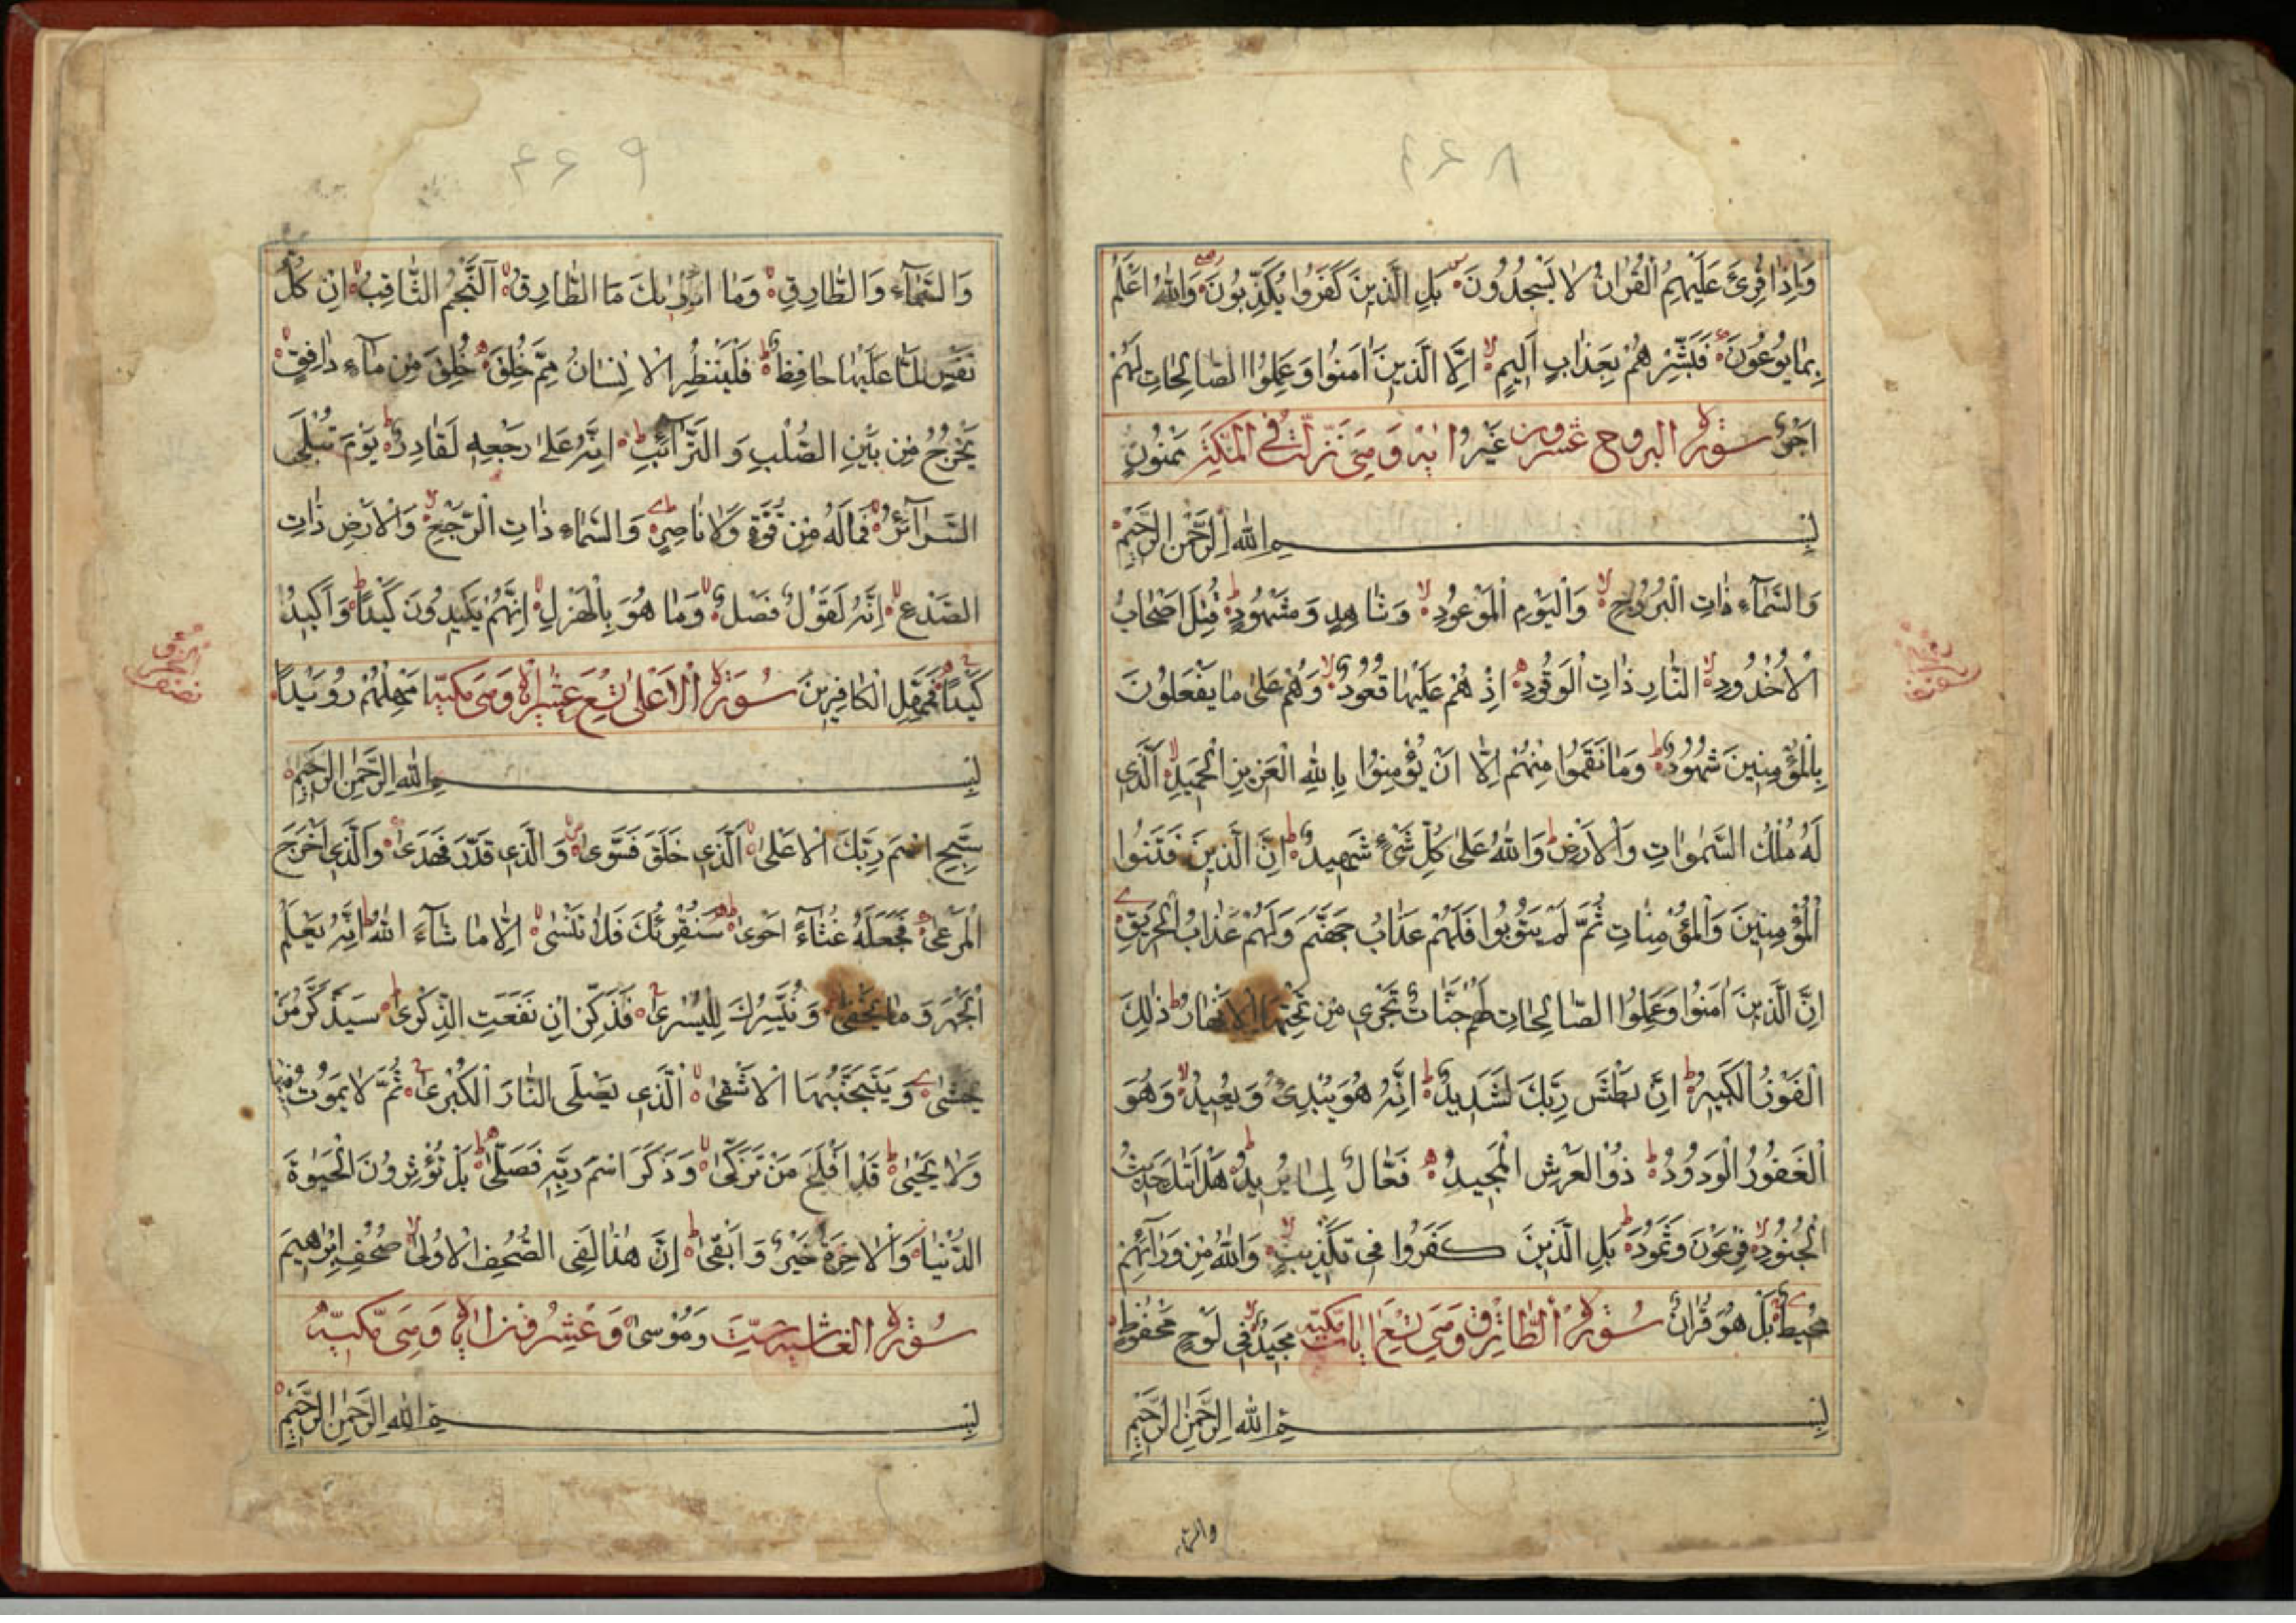 ٤٦٨
وَاِذَا قُرِئَ عَلَيْهِمُ الْقُرْاٰنُ لَا يَسْجُدُوْنَ بَلِ الَّذِيْنَ كَفَرُوْا يُكَذِّبُوْنَ وَاللّٰهُ اَعْلَمُ
بِمَا يُوْعُوْنَ فَبَشِّرْهُمْ بِعَذَابٍ اَلِيْمٍ اِلَّا الَّذِيْنَ اٰمَنُوْا وَعَمِلُوا الصَّالِحَاتِ لَهُمْ
اَجْرٌ سورة البروج عشرون غَيْرُ اية وهى نزلت فى المكة مَمْنُوْنٍ
بِسْمِ اللّٰهِ الرَّحْمٰنِ الرَّحِيْمِ
وَالسَّمَآءِ ذَاتِ الْبُرُوْجِ وَالْيَوْمِ الْمَوْعُوْدِ وَشَاهِدٍ وَمَشْهُوْدٍ قُتِلَ اَصْحَابُ
الْاُخْدُوْدِ النَّارِ ذَاتِ الْوَقُوْدِ اِذْ هُمْ عَلَيْهَا قُعُوْدٌ وَهُمْ عَلٰى مَا يَفْعَلُوْنَ
بِالْمُؤْمِنِيْنَ شُهُوْدٌ وَمَا نَقَمُوْا مِنْهُمْ اِلَّا اَنْ يُؤْمِنُوْا بِاللّٰهِ الْعَزِيْزِ الْحَمِيْدِ الَّذِيْ
لَهٗ مُلْكُ السَّمٰوَاتِ وَالْاَرْضِ وَاللّٰهُ عَلٰى كُلِّ شَيْءٍ شَهِيْدٌ اِنَّ الَّذِيْنَ فَتَنُوا
الْمُؤْمِنِيْنَ وَالْمُؤْمِنَاتِ ثُمَّ لَمْ يَتُوْبُوْا فَلَهُمْ عَذَابُ جَهَنَّمَ وَلَهُمْ عَذَابُ الْحَرِيْقِ
اِنَّ الَّذِيْنَ اٰمَنُوْا وَعَمِلُوا الصَّالِحَاتِ لَهُمْ جَنَّاتٌ تَجْرِيْ مِنْ تَحْتِهَا الْاَنْهَارُ ذٰلِكَ
الْفَوْزُ الْكَبِيْرُ اِنَّ بَطْشَ رَبِّكَ لَشَدِيْدٌ اِنَّهٗ هُوَ يُبْدِئُ وَيُعِيْدُ وَهُوَ
الْغَفُوْرُ الْوَدُوْدُ ذُو الْعَرْشِ الْمَجِيْدُ فَعَّالٌ لِمَا يُرِيْدُ هَلْ اَتٰىكَ حَدِيْثُ
الْجُنُوْدِ فِرْعَوْنَ وَثَمُوْدَ بَلِ الَّذِيْنَ كَفَرُوْا فِيْ تَكْذِيْبٍ وَاللّٰهُ مِنْ وَرَآئِهِمْ
مُحِيْطٌ بَلْ هُوَ قُرْاٰنٌ سورة الطارق وهى ايات مكية مَجِيْدٌ فِيْ لَوْحٍ مَحْفُوْظٍ
بِسْمِ اللّٰهِ الرَّحْمٰنِ الرَّحِيْمِ
٤٦٩
وَالسَّمَآءِ وَالطَّارِقِ وَمَا اَدْرٰىكَ مَا الطَّارِقُ اَلنَّجْمُ الثَّاقِبُ اِنْ كُلُّ
نَفْسٍ لَمَّا عَلَيْهَا حَافِظٌ فَلْيَنْظُرِ الْاِنْسَانُ مِمَّ خُلِقَ خُلِقَ مِنْ مَآءٍ دَافِقٍ
يَخْرُجُ مِنْ بَيْنِ الصُّلْبِ وَالتَّرَآئِبِ اِنَّهٗ عَلٰى رَجْعِهٖ لَقَادِرٌ يَوْمَ تُبْلَى
السَّرَآئِرُ فَمَا لَهٗ مِنْ قُوَّةٍ وَلَا نَاصِرٍ وَالسَّمَاءِ ذَاتِ الرَّجْعِ وَالْاَرْضِ ذَاتِ
الصَّدْعِ اِنَّهٗ لَقَوْلٌ فَصْلٌ وَمَا هُوَ بِالْهَزْلِ اِنَّهُمْ يَكِيْدُوْنَ كَيْدًا وَاَكِيْدُ
كَيْدًا فَمَهِّلِ الْكَافِرِيْنَ سورة الاعلى تسع عشر اية وهى مكية اَمْهِلْهُمْ رُوَيْدًا
بِسْمِ اللّٰهِ الرَّحْمٰنِ الرَّحِيْمِ
سَبِّحِ اسْمَ رَبِّكَ الْاَعْلٰى الَّذِيْ خَلَقَ فَسَوّٰى وَالَّذِيْ قَدَّرَ فَهَدٰى وَالَّذِيْ اَخْرَجَ
الْمَرْعٰى فَجَعَلَهٗ غُثَآءً اَحْوٰى سَنُقْرِئُكَ فَلَا تَنْسٰى اِلَّا مَا شَآءَ اللّٰهُ اِنَّهٗ يَعْلَمُ
الْجَهْرَ وَمَا يَخْفٰى وَنُيَسِّرُكَ لِلْيُسْرٰى فَذَكِّرْ اِنْ نَفَعَتِ الذِّكْرٰى سَيَذَّكَّرُ مَنْ
يَخْشٰى وَيَتَجَنَّبُهَا الْاَشْقٰى الَّذِيْ يَصْلَى النَّارَ الْكُبْرٰى ثُمَّ لَا يَمُوْتُ فِيْهَا
وَلَا يَحْيٰى قَدْ اَفْلَحَ مَنْ تَزَكّٰى وَذَكَرَ اسْمَ رَبِّهٖ فَصَلّٰى بَلْ تُؤْثِرُوْنَ الْحَيٰوةَ
الدُّنْيَا وَالْاٰخِرَةُ خَيْرٌ وَاَبْقٰى اِنَّ هٰذَا لَفِى الصُّحُفِ الْاُوْلٰى صُحُفِ اِبْرٰهِيْمَ
سورة الغاشية ست وَمُوْسٰى وعشرون اية وهى مكية
بِسْمِ اللّٰهِ الرَّحْمٰنِ الرَّحِيْمِ